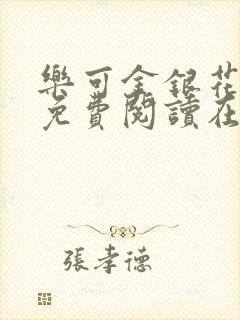 樂可金銀花
免費閱讀在
張孝德